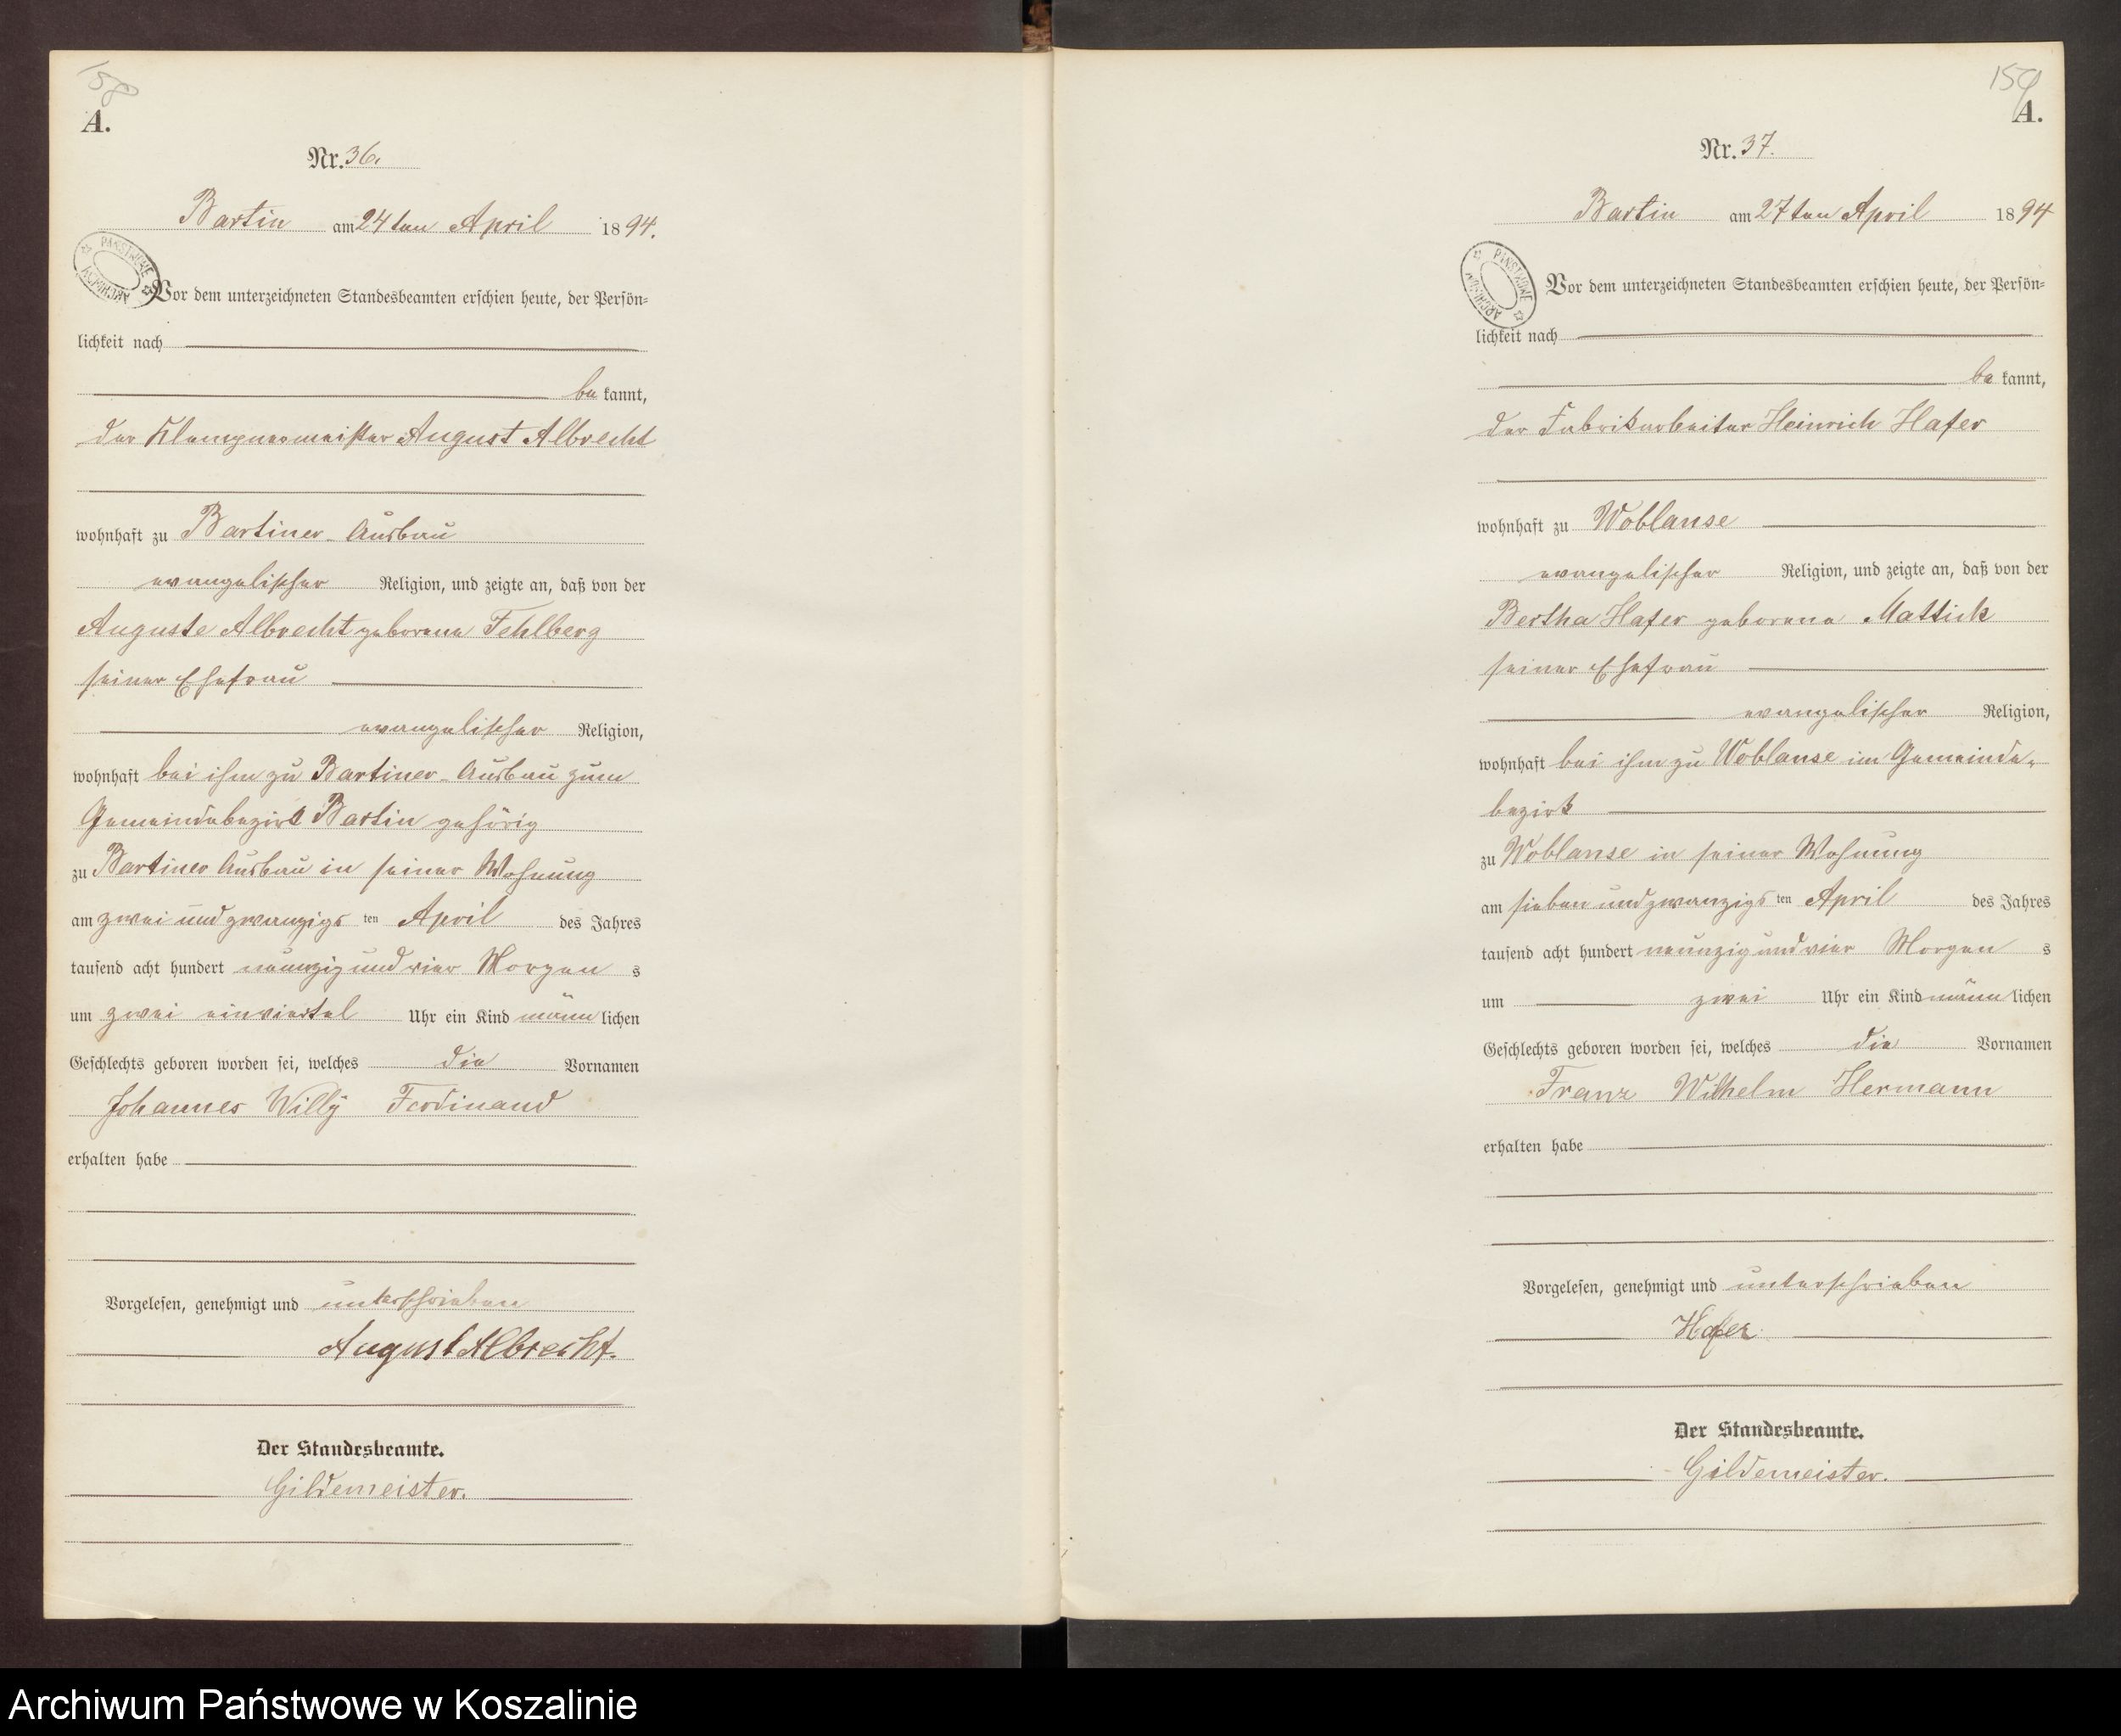 158
A.
Nr. 36.
Bartin am 24ten April 1894.
PAŃSTWOWE ARCHIWUM
Vor dem unterzeichneten Standesbeamten erschien heute, der Persön=
lichkeit nach
be kannt,
der Klempnermeister August Albrecht
wohnhaft zu Bartiner Ausbau
evangelischer Religion, und zeigte an, daß von der
Auguste Albrecht geborene Fehlberg
seiner Ehefrau
evangelischer Religion,
wohnhaft bei ihm zu Bartiner Ausbau zum
Gemeindebezirk Bartin gehörig
zu Bartiner Ausbau in seiner Wohnung
am zwei und zwanzigs ten April des Jahres
tausend acht hundert neunzig und vier Morgen s
um zwei einviertel Uhr ein Kind männ lichen
Geschlechts geboren worden sei, welches die Vornamen
Johannes Willy Ferdinand
erhalten habe
Vorgelesen, genehmigt und unterschrieben
August Albrecht.
Der Standesbeamte.
Gildemeister.
159
A.
Nr. 37.
Bartin am 27ten April 1894
PAŃSTWOWE ARCHIWUM
Vor dem unterzeichneten Standesbeamten erschien heute, der Persön=
lichkeit nach
be kannt,
der Fabrikarbeiter Heinrich Hafer
wohnhaft zu Woblanse
evangelischer Religion, und zeigte an, daß von der
Bertha Hafer geborene Mattick
seiner Ehefrau
evangelischer Religion,
wohnhaft bei ihm zu Woblanse im Gemeinde-
bezirk
zu Woblanse in seiner Wohnung
am sieben und zwanzigs ten April des Jahres
tausend acht hundert neunzig und vier Morgen s
um zwei Uhr ein Kind männ lichen
Geschlechts geboren worden sei, welches die Vornamen
Franz Wilhelm Hermann
erhalten habe
Vorgelesen, genehmigt und unterschrieben
Hafer
Der Standesbeamte.
Gildemeister.
Archiwum Państwowe w Koszalinie